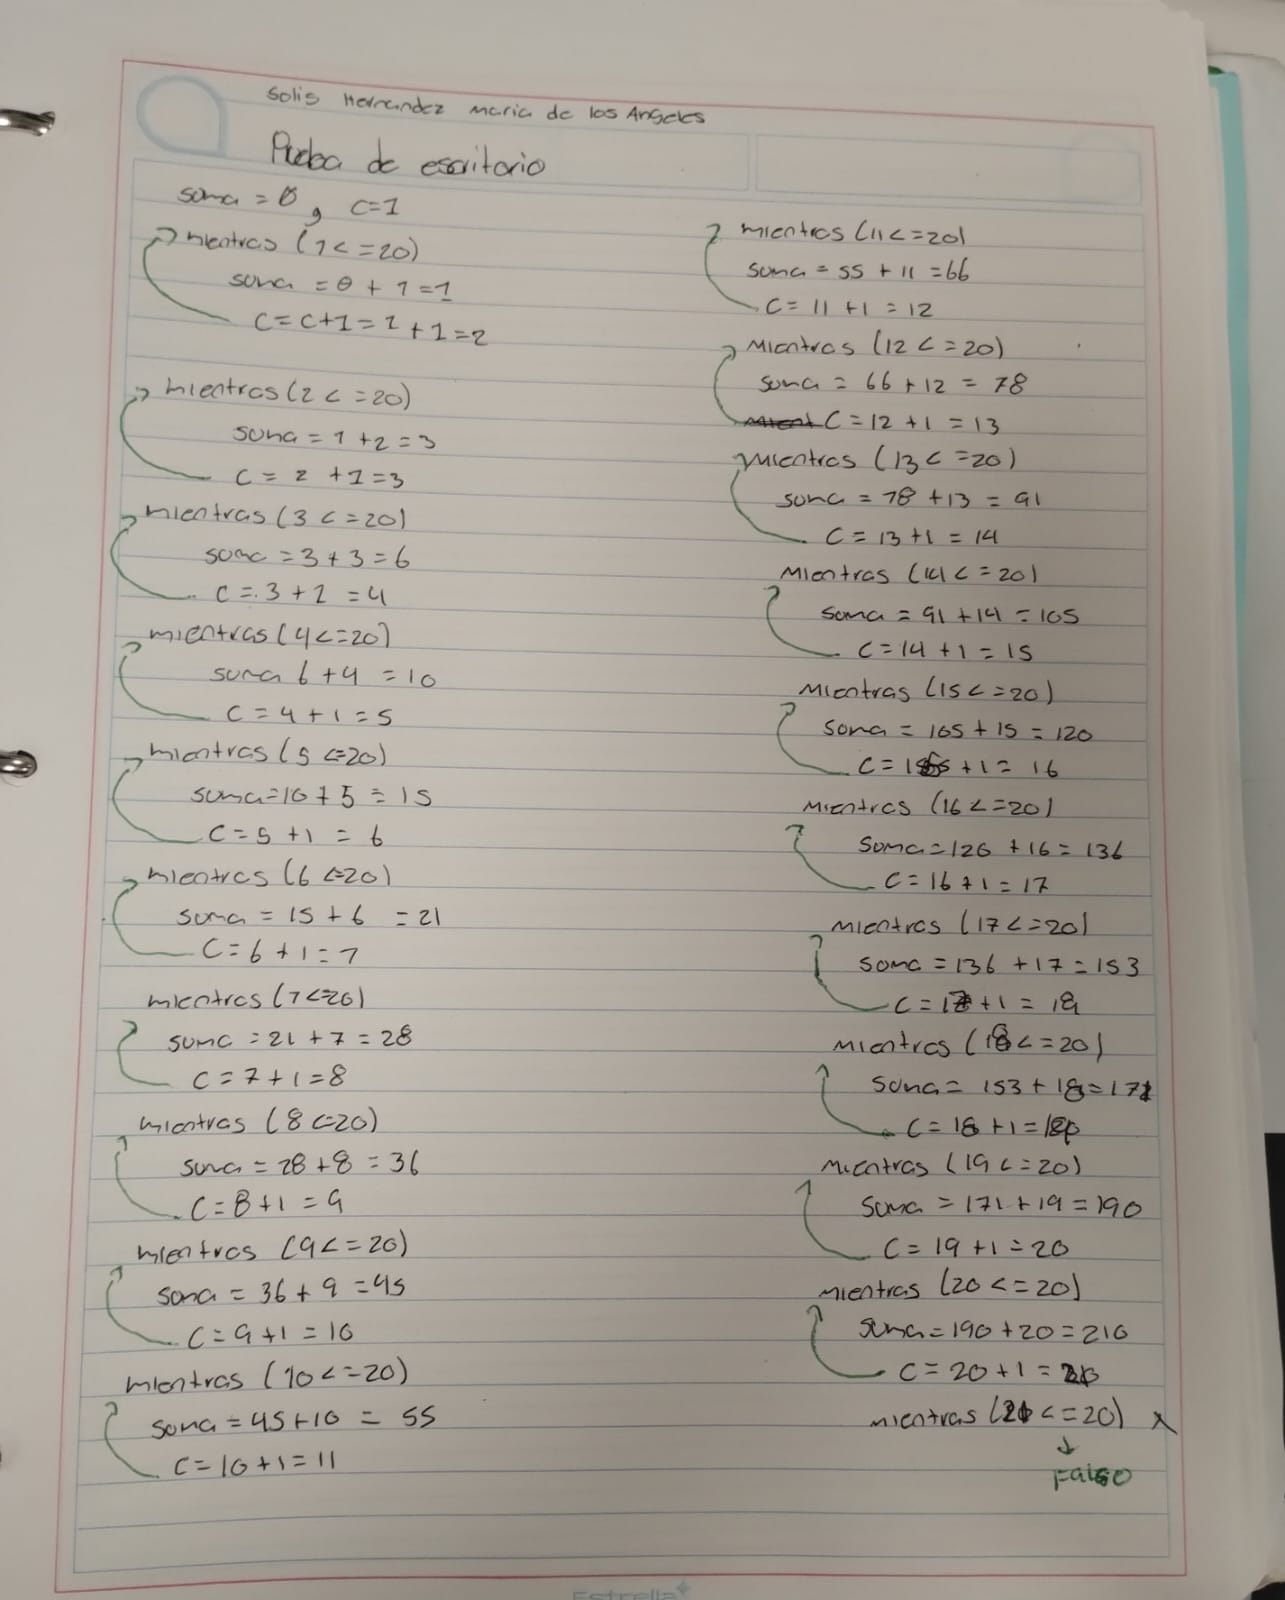 Solis Hernandez Maria de los Angeles
Prueba de escritorio
suma = 0, c=1
mientras (1<=20)
suma = 0 + 1 = 1
c = c+1 = 1 + 1 = 2
mientras (2 <=20)
suma = 1 + 2 = 3
c = 2 + 1 = 3
mientras (3 <=20)
suma = 3 + 3 = 6
c = 3 + 1 = 4
mientras (4<=20)
suma 6 + 4 = 10
c = 4 + 1 = 5
mientras (5 <=20)
suma = 10 + 5 = 15
c = 5 + 1 = 6
mientras (6 <=20)
suma = 15 + 6 = 21
c = 6 + 1 = 7
mientras (7<=20)
suma = 21 + 7 = 28
c = 7 + 1 = 8
mientras (8 <=20)
suma = 28 + 8 = 36
c = 8 + 1 = 9
mientras (9 <=20)
suma = 36 + 9 = 45
c = 9 + 1 = 10
mientras (10 <=20)
suma = 45 + 10 = 55
c = 10 + 1 = 11
mientras (11 <=20)
suma = 55 + 11 = 66
c = 11 + 1 = 12
mientras (12 <=20)
suma = 66 + 12 = 78
c = 12 + 1 = 13
mientras (13 <=20)
suma = 78 + 13 = 91
c = 13 + 1 = 14
mientras (14 <=20)
suma = 91 + 14 = 105
c = 14 + 1 = 15
mientras (15 <=20)
suma = 105 + 15 = 120
c = 15 + 1 = 16
mientras (16 <=20)
suma = 120 + 16 = 136
c = 16 + 1 = 17
mientras (17 <=20)
suma = 136 + 17 = 153
c = 17 + 1 = 18
mientras (18 <=20)
suma = 153 + 18 = 171
c = 18 + 1 = 19
mientras (19 <=20)
suma = 171 + 19 = 190
c = 19 + 1 = 20
mientras (20 <=20)
suma = 190 + 20 = 210
c = 20 + 1 = 21
mientras (21 <=20) x
Falso
Estrella